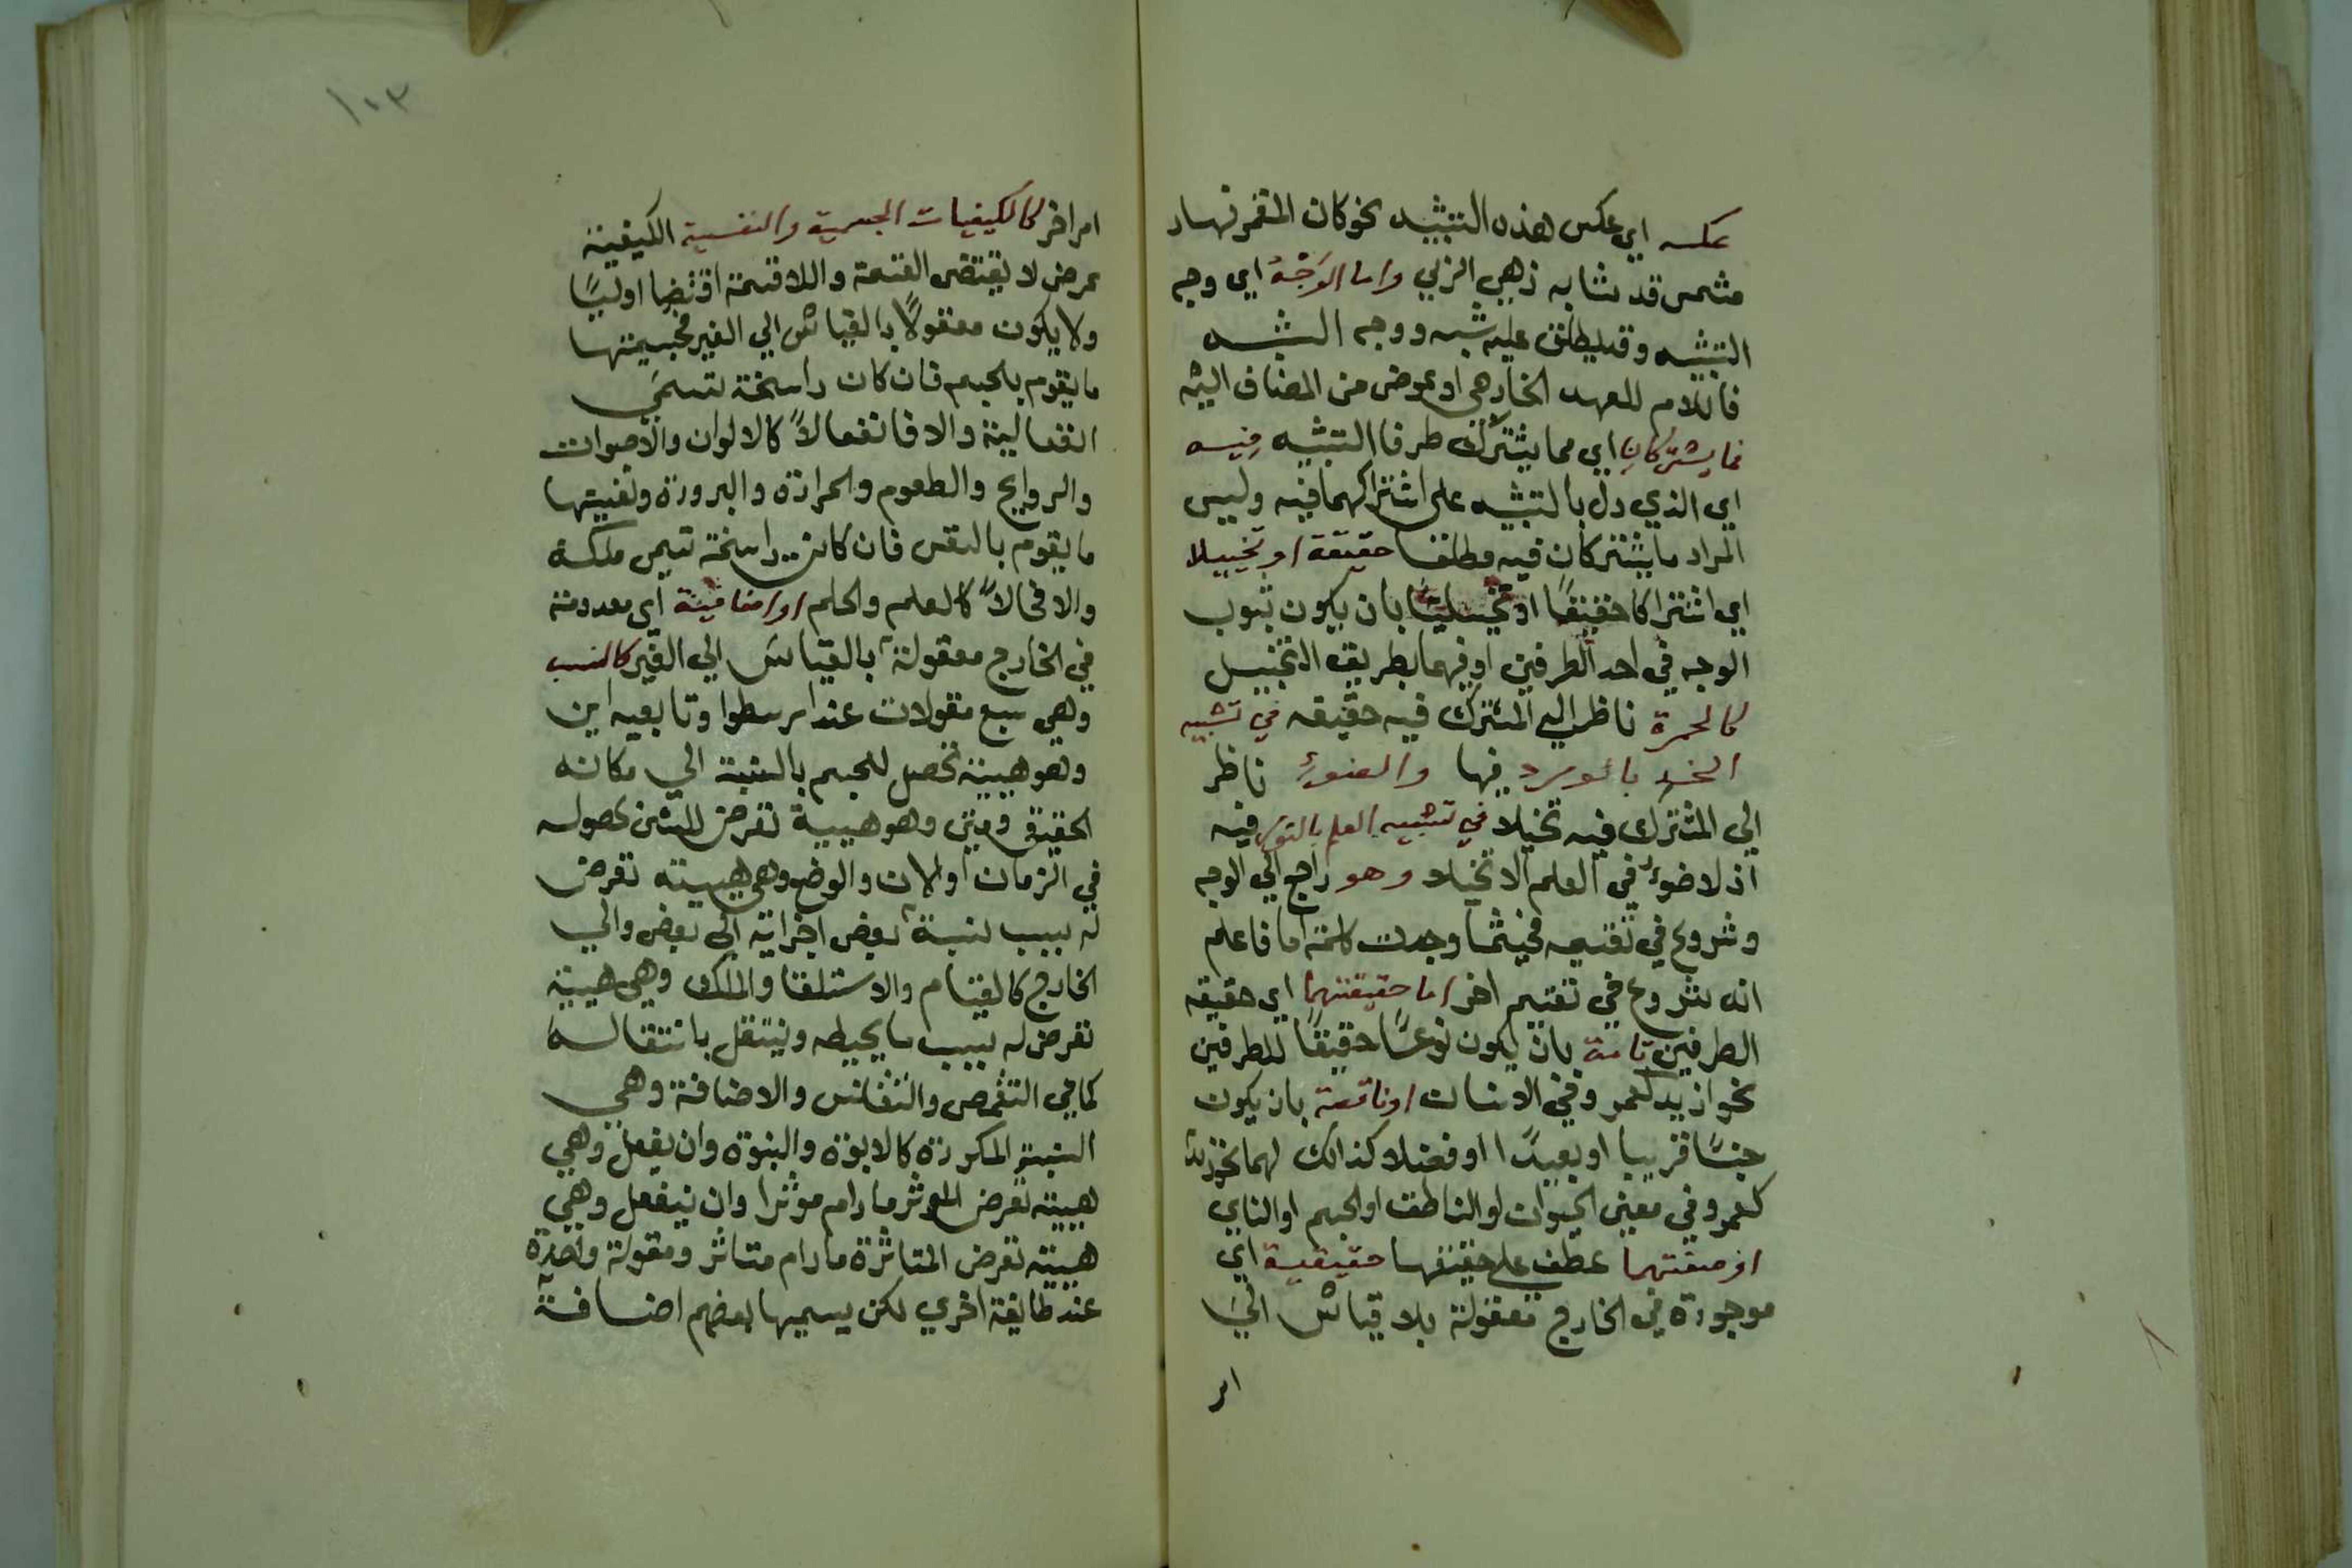 عكسه اي عكس هذه التشبيه نحو كان المقمر نهار
مشمس قد شابه زهر الربي واما الوجه اي وجه
التشبيه وقد يطلق عليه شبه ووجه الشبه
فاللام للعهد الخارجي او عوض من المضاف اليه
فما يشتركان اي مما يشترك طرفا التشبيه فيه
اي الذي دل بالتشبيه على اشتراكهما فيه وليس
المراد ما يشتركان فيه مطلقا حقيقة او تخييلا
اي اشتراكا حقيقيا او تخييليا بان يكون ثبوت
الوجه في احد الطرفين او فيهما بطريق التخييل
كالحمرة ناظر الي المشترك فيه حقيقه في تشبيه
الخد بالورد فيها والضوء ناظر
الي المشترك فيه تخيلا في تشبيه العلم بالنور فيه
اذ لا ضوء في العلم الا تخيلا وهو راجع الي الوجه
وشروع في تقسيمه فحيثما وجدت كلمة اما فاعلم
انه شروع في تقسيم اخر اما حقيقتهما اي حقيقه
الطرفين تامة بان يكون نوعا حقيقا للطرفين
نحو ازيد كعمرو في الانسان او ناقصة بان يكون
جنسًا قريبا او بعيدًا او فصلا كذالك لهما نحو زيد
كعمرو في معنى الحيوان او الناطق او الجسم او النامي
او صفتهما عطف علي حقيقتهما حقيقية اي
موجودة في الخارج معقولة بلا قياس الي
امر
١٠٣
امر اخر كالكيفيات الجسمية والنفسية الكيفية
عرض لا يقتضى القسمة واللاقسمة اقتضا اوليًا
ولا يكون معقولاً بالقياس الي الغير فجسميتها
ما يقوم بالجسم فان كان راسخة تسمي
انفعالية والا فانفعالاً كالالوان والاصوات
والروايح والطعوم والحرارة والبرودة ونفسيتها
ما يقوم بالنفس فان كانت راسخة تسمى ملكة
والا فحالاً كالعلم والحلم او اضافية اي معدومة
في الخارج معقولة بالقياس الي الغير كالنسب
وهي سبع مقولات عند ارسطوا وتابعيه اين
وهو هيية تحصل للجسم بالنسبة الي مكانه
الحقيقي ومتى وهو هيية تعرض للشى بحصوله
في الزمان او الان والوضع وهي هيية تعرض
له بسبب نسبة بعض اجزايه الي بعض والي
الخارج كالقيام والاستلقا والملك وهي هيية
تعرض له بسبب ما يحيطه وينتقل بانتقاله
كما في التقمص والتقلنس والاضافة وهي
النسبة المكررة كالابوة والبنوة وان يفعل وهي
هيية تعرض الموثر ما دام موثرا وان ينفعل وهي
هيية تعرض المتاثرة ما دام متاثر ومقولة واحدة
عند طايفة اخري لكن يسميها بعضهم اضافة